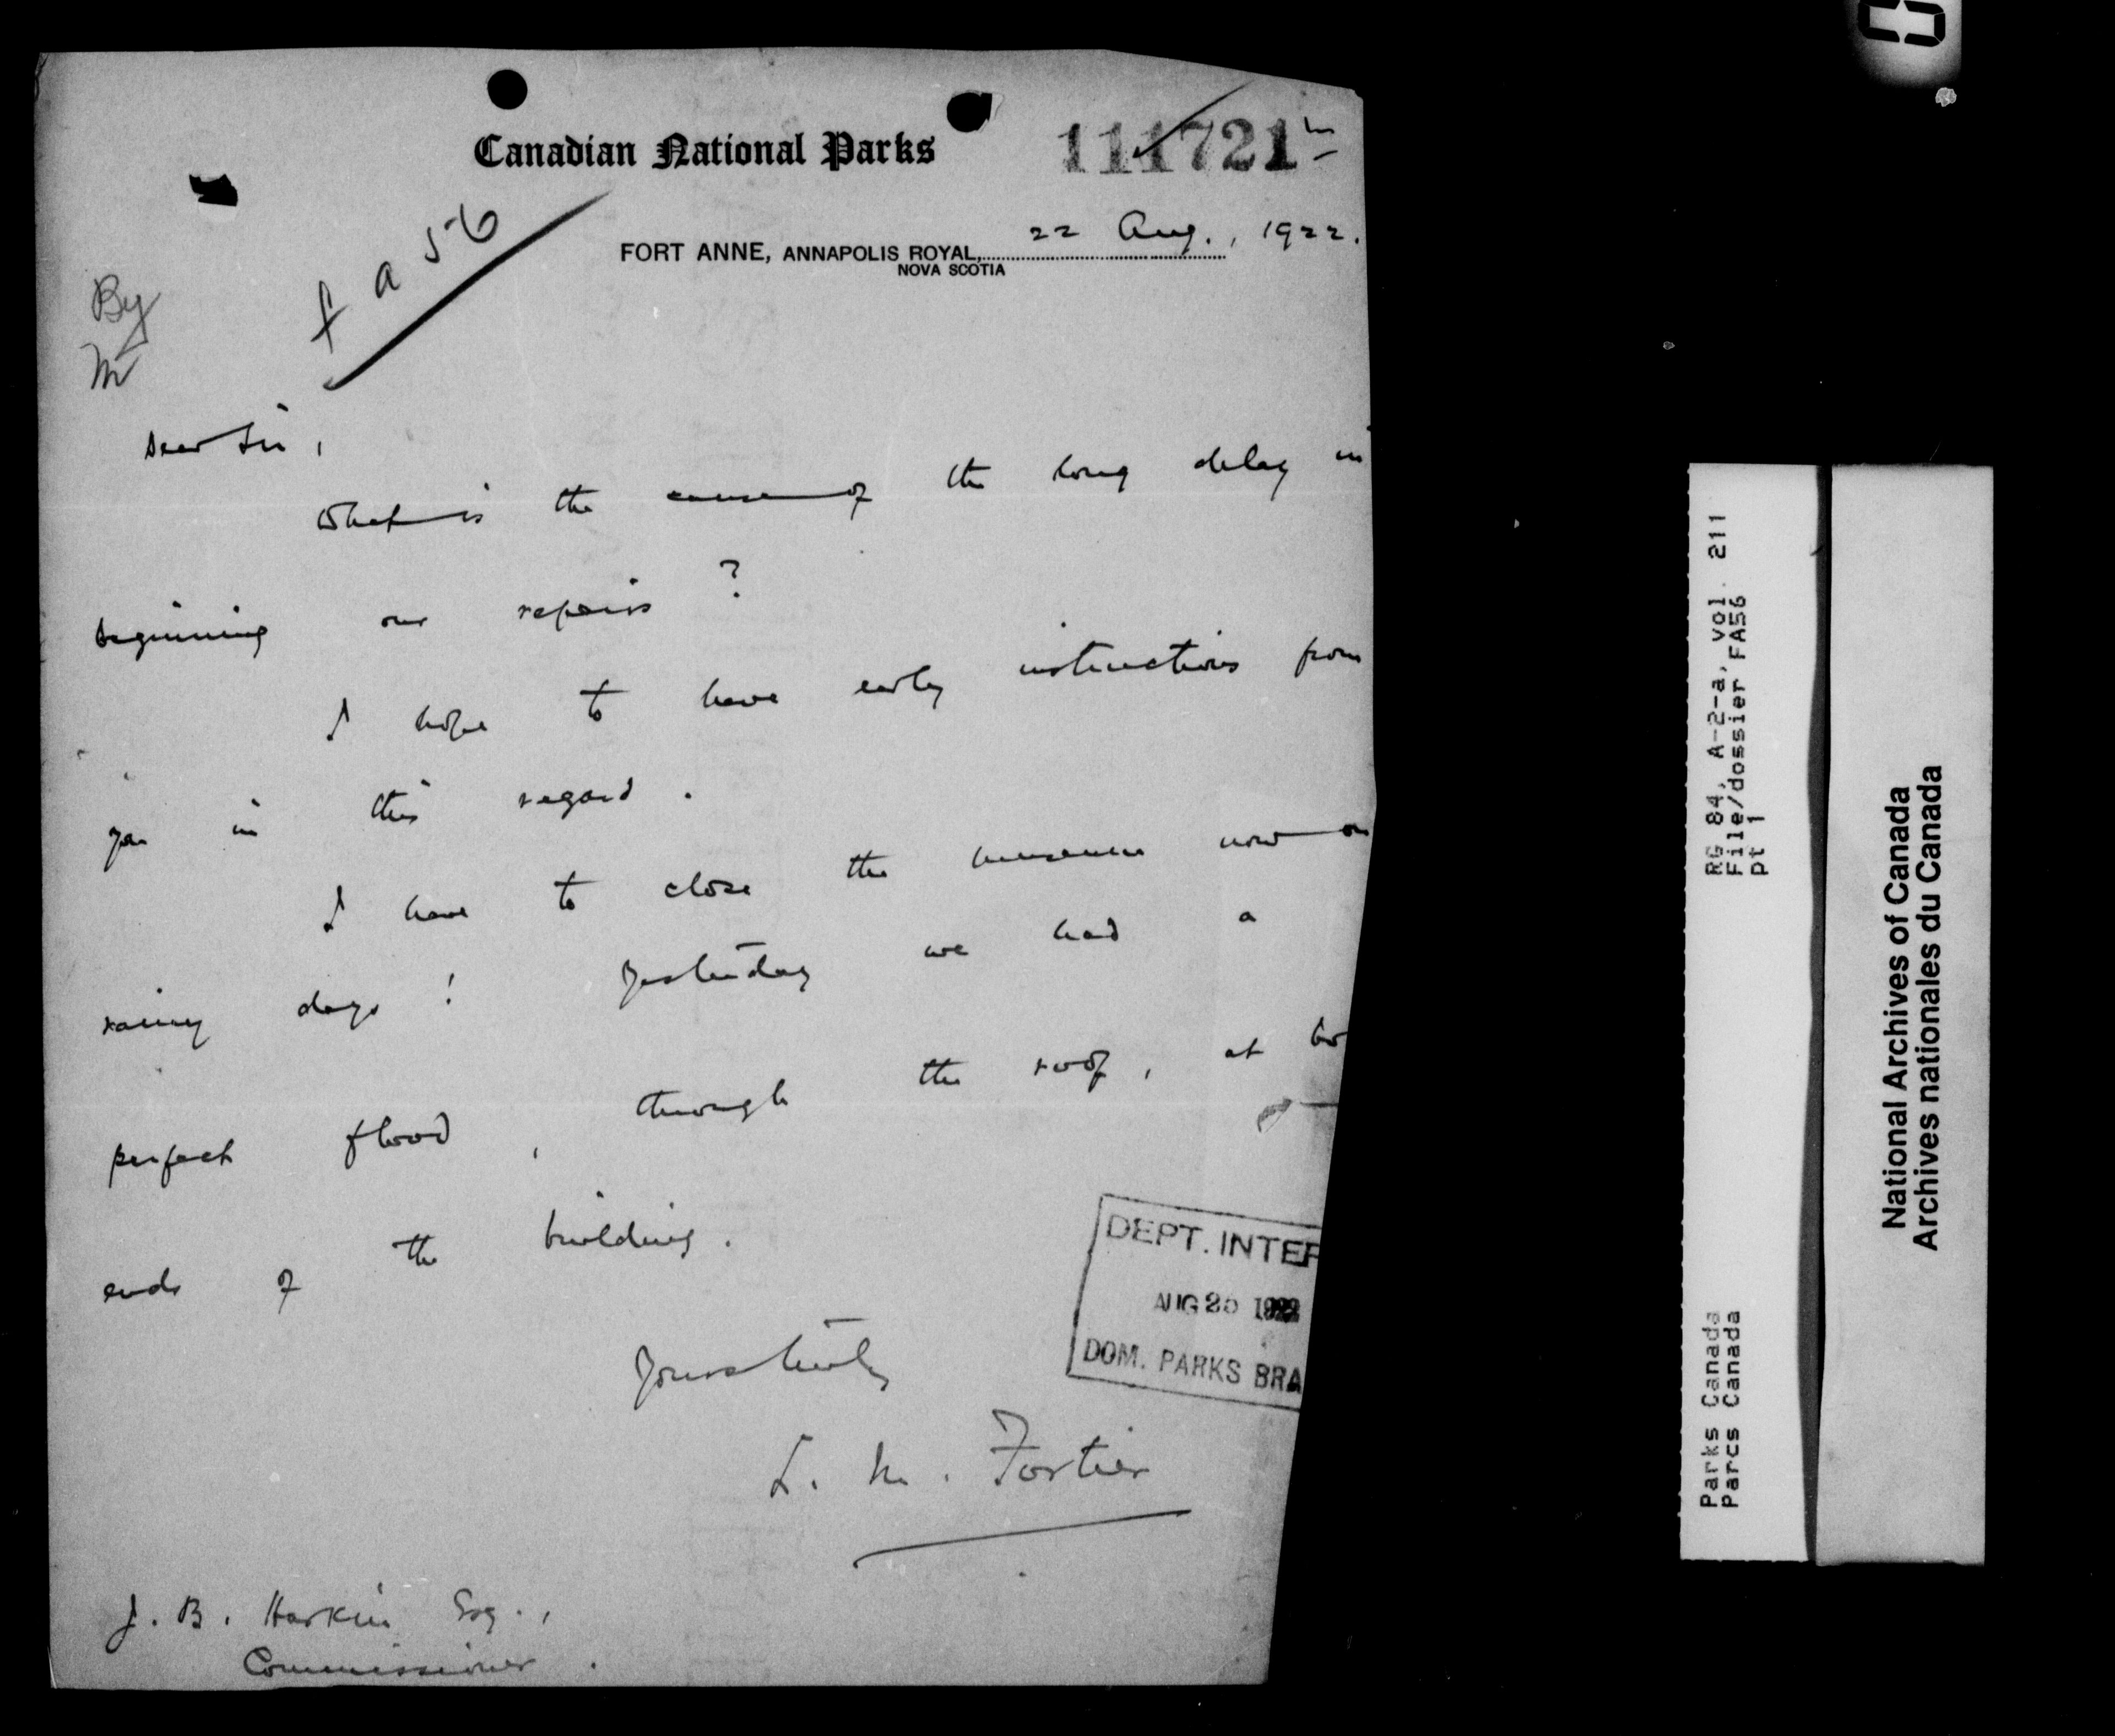 Canadian National Parks
111721
FORT ANNE, ANNAPOLIS ROYAL, 22 Aug., 1922.
NOVA SCOTIA
f a 56
By
m
Dear Sir,
What is the cause of the long delay in
beginning our repairs?
I hope to have early instructions from
you in this regard.
I have to close the museum now on
rainy days! Yesterday we had a
perfect flood, through the roof, at bo
ends of the building.
Yours truly
L. M. Fortier
DEPT. INTER
AUG 25 1922
DOM. PARKS BRA
J. B. Harkin Esq.,
Commissioner.
RG 84, A-2-a, vol. 211
File/dossier FA56
pt 1
Parks Canada
Parcs Canada
National Archives of Canada
Archives nationales du Canada